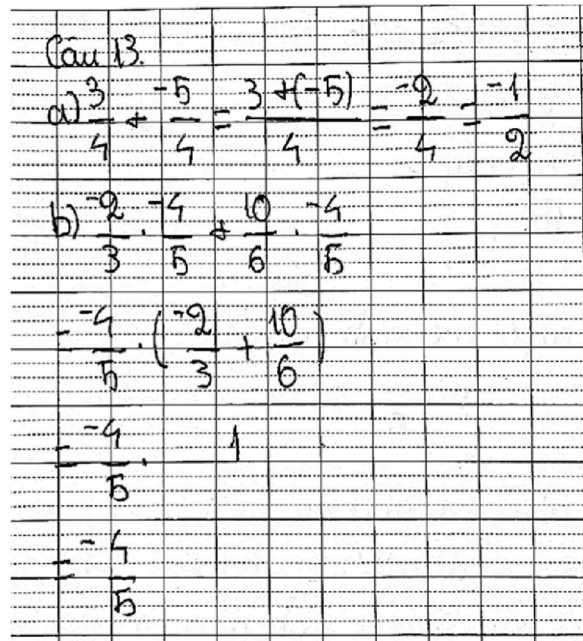 Câu 13.
a) 3/4 + -5/4 = 3+(-5)/4 = -2/4 = -1/2
b) -2/3 . -4/5 + 10/6 . -4/5
= -4/5 . (-2/3 + 10/6)
= -4/5 . 1
= -4/5